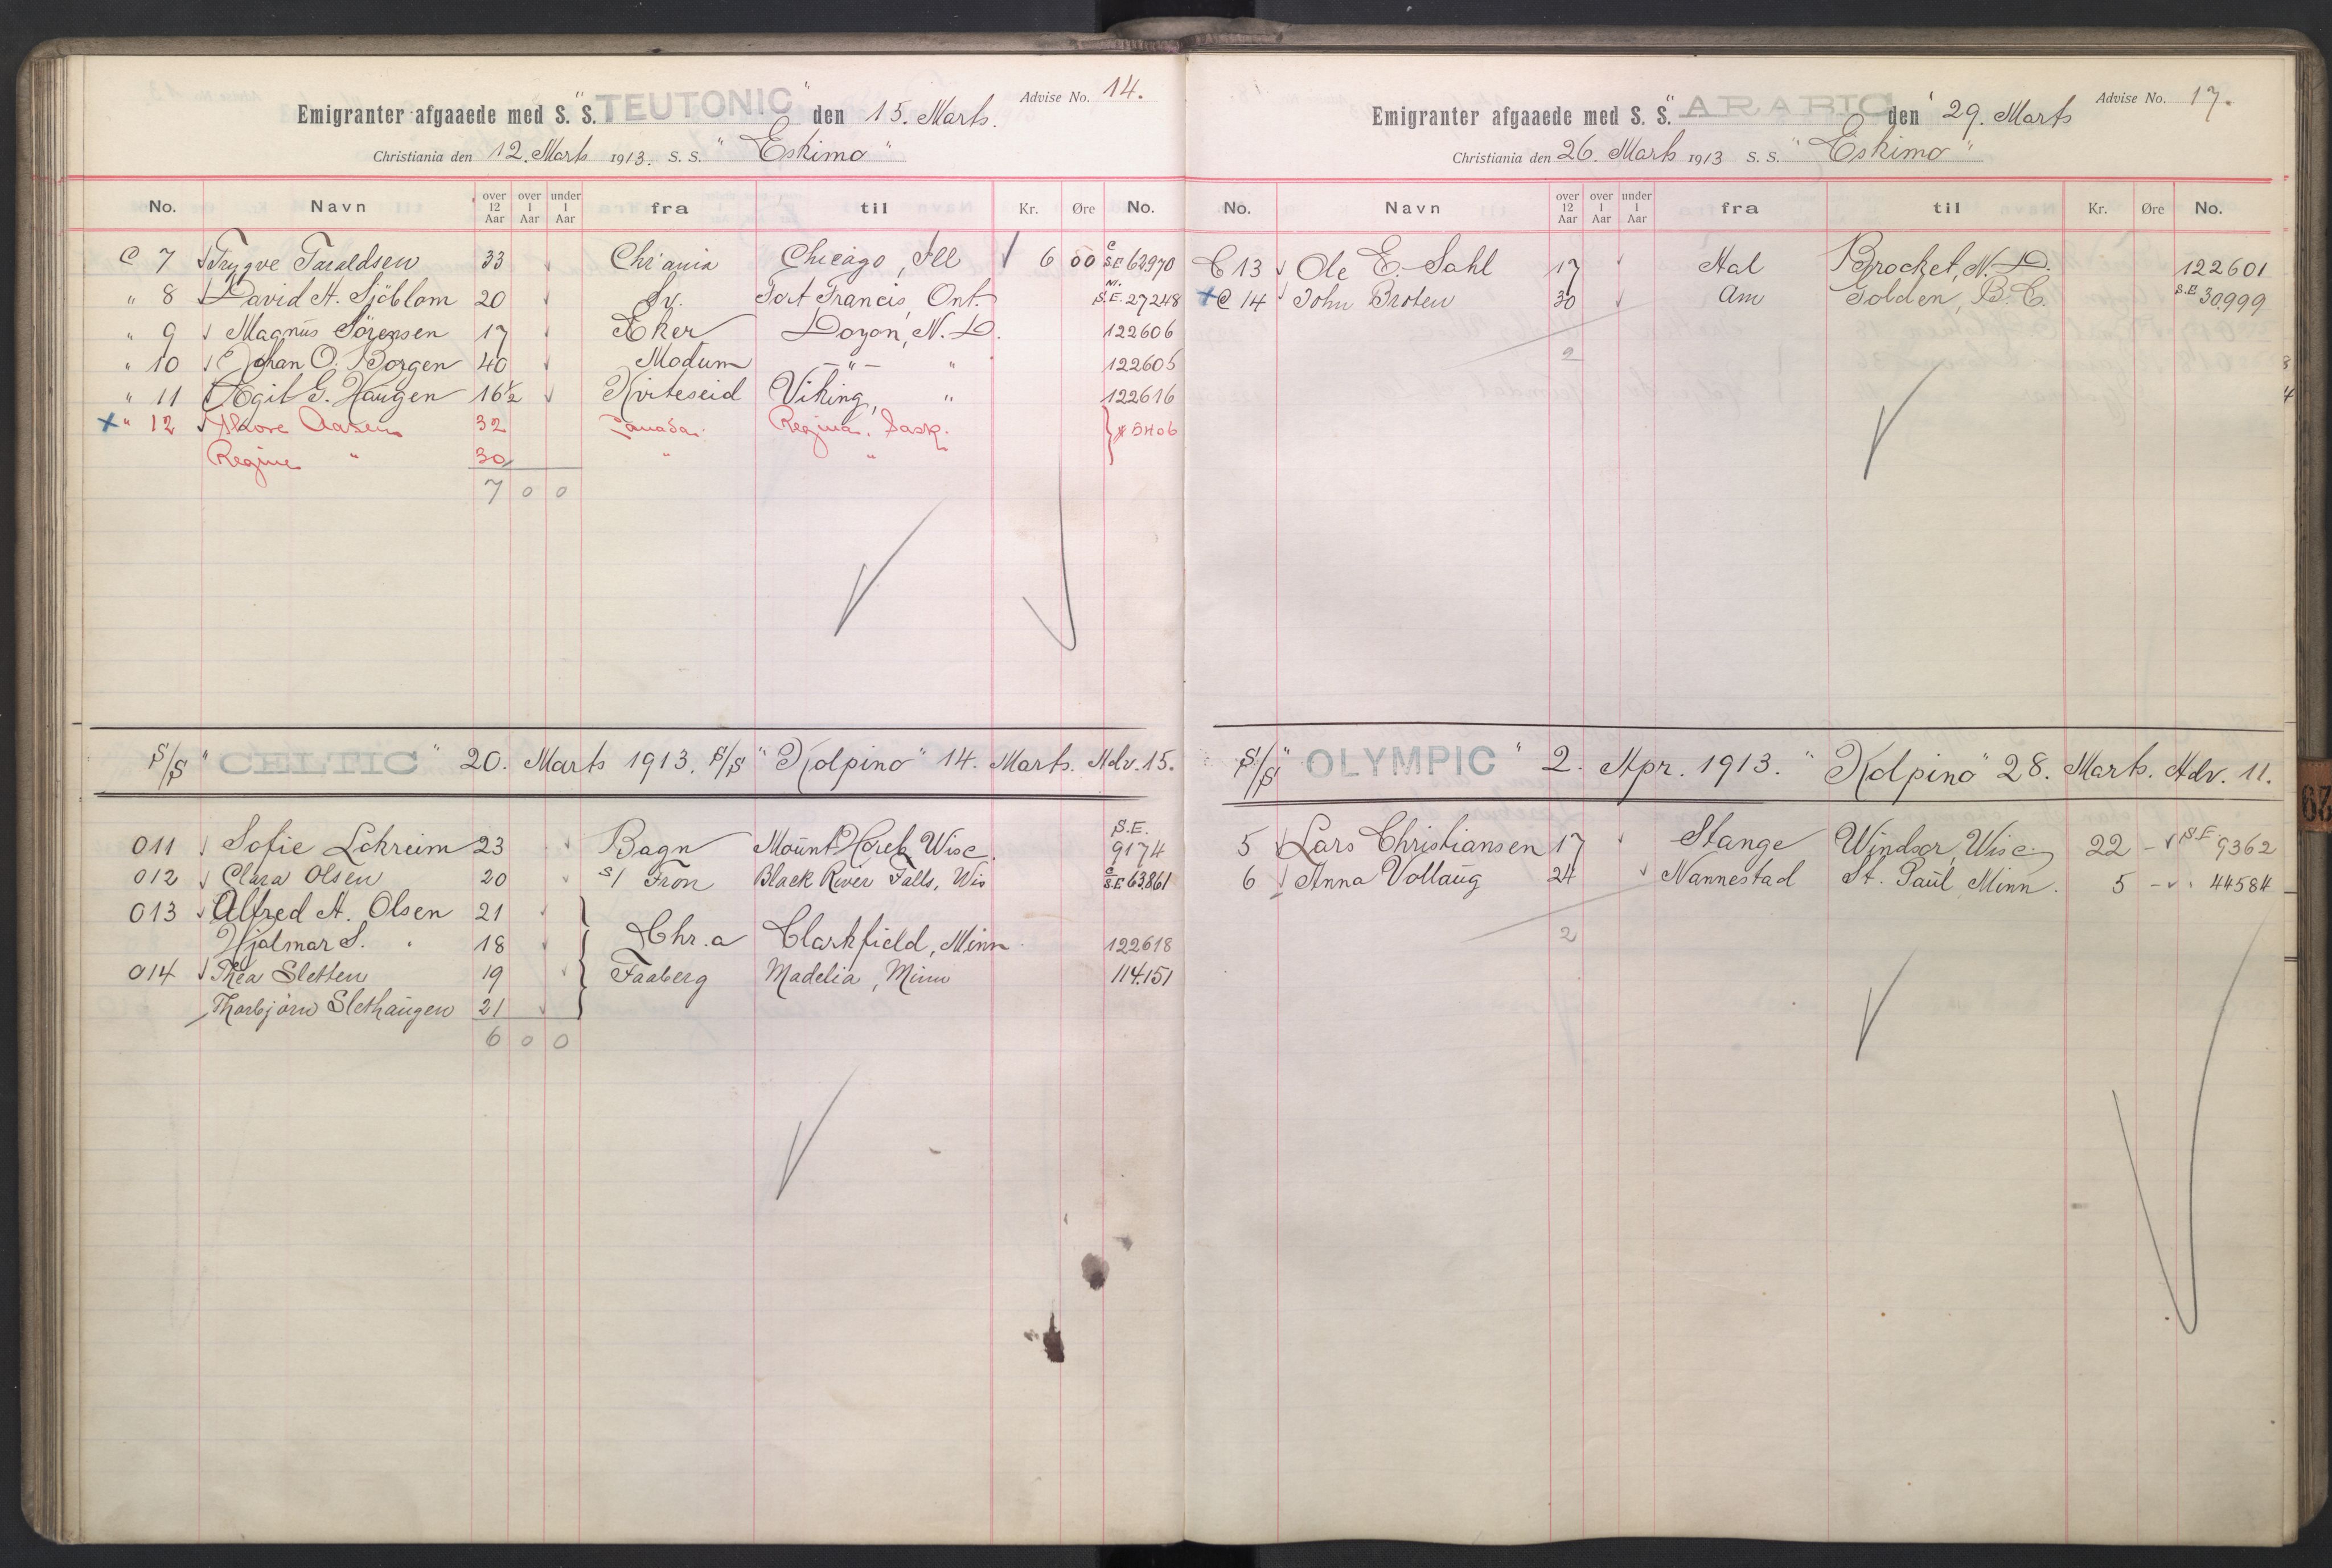 Advise No. 14.
Emigranter afgaaede med S. S. "TEUTONIC" den 15. Marts.
Christiania den 12. Marts 1913. S. S. "Eskimo"
No. Navn over 12 Aar over 1 Aar under 1 Aar fra til Kr. Øre No.
C 7 Trygve Taraldsen 33 Chr'ania Chicago, Ill 6 00 C S.E 63970
" 8 David H. Sjöblom 20 Sv. Fort Francis, Ont. S.E. 27248
" 9 Magnus Sörensen 17 Eker Doyon, N. D. 122606
" 10 Johan O. Borgen 40 Modum —"— " 122605
" 11 Egil G. Haugen 16½ Kviteseid Viking, " 122616
x " 12 Aasen 32 Canada. Regina. Sask.
Regine " 30 " "
7 0 0
S/S "CELTIC" 20. Marts 1913. S/S "Kolpino" 14. Marts. Adv. 15.
011 Sofie Lokreim 23 Bagn Mount Horeb Wisc. S.E. 9174
012 Clara Olsen 20 S/ Fron Black River Falls, Wis C S.E 63861
013 Alfred A. Olsen 21
Hjalmar S. " 18 Chr.a Clarkfield, Minn. 122618
014 Thea Sletten 19 Faaberg Madelia, Minn 114151
Thorbjörn Slethaugen 21
6 0 0
Advise No. 17.
Emigranter afgaaede med S. S. "ARABIC" den 29. Marts
Christiania den 26. Marts 1913 S. S. "Eskimo"
No. Navn over 12 Aar over 1 Aar under 1 Aar fra til Kr. Øre No.
C 13 Ole E. Sahl 17 Hal Brocket, N. D. 122601
x C 14 John Broten 30 Am Golden, B. C. S.E 30999
2
S/S "OLYMPIC" 2. Apr. 1913. "Kolpino" 28. Marts. Adv. 11.
5 Lars Christiansen 17 Stange Windsor, Wisc. 22 – S.E. 9362
6 Anna Vollaug 24 Nannestad St. Paul Minn. 5 – " 44584
2
29